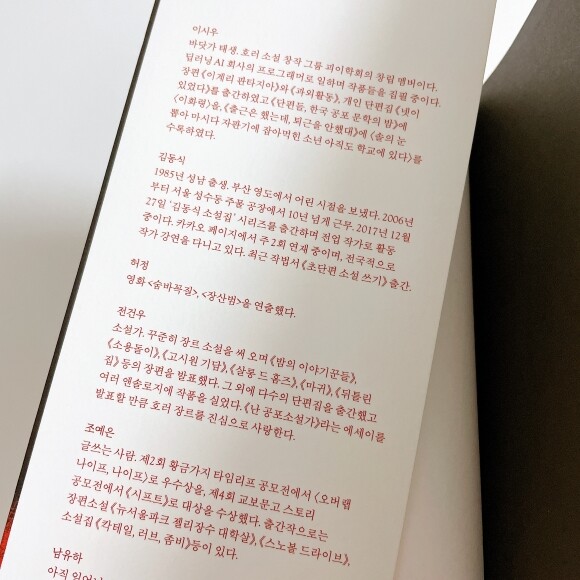 이시우
바닷가 태생. 호러 소설 창작 그룹 괴이학회의 창립 멤버이다.
딥러닝 AI 회사의 프로그래머로 일하며 작품들을 집필 중이다.
장편 《이계리 판타지아》와 《과외활동》, 개인 단편집 《넷이
있었다》를 출간하였고 《단편들, 한국 공포 문학의 밤》에
〈이화령〉을, 《출근은 했는데, 퇴근을 안했대》에 〈솔의 눈
뽑아 마시다 자판기에 잡아먹힌 소년 아직도 학교에 있다〉를
수록하였다.
김동식
1985년 성남 출생. 부산 영도에서 어린 시절을 보냈다. 2006년
부터 서울 성수동 주물 공장에서 10년 넘게 근무. 2017년 12월
27일 '김동식 소설집' 시리즈를 출간하며 전업 작가로 활동
중이다. 카카오 페이지에서 주 2회 연재 중이며, 전국적으로
작가 강연을 다니고 있다. 최근 작법서 《초단편 소설 쓰기》 출간.
허정
영화 <숨바꼭질>, <장산범>을 연출했다.
전건우
소설가. 꾸준히 장르 소설을 써 오며 《밤의 이야기꾼들》,
《소용돌이》, 《고시원 기담》, 《살롱 드 홈즈》, 《마귀》, 《뒤틀린
집》 등의 장편을 발표했다. 그 외에 다수의 단편집을 출간했고
여러 앤솔로지에 작품을 실었다. 《난 공포소설가》라는 에세이를
발표할 만큼 호러 장르를 진심으로 사랑한다.
조예은
글쓰는 사람. 제2회 황금가지 타임리프 공모전에서 〈오버랩
나이프, 나이프〉로 우수상을, 제4회 교보문고 스토리
공모전에서 《시프트》로 대상을 수상했다. 출간작으로는
장편소설 《뉴서울파크 젤리장수 대학살》, 《스노볼 드라이브》,
소설집 《칵테일, 러브, 좀비》 등이 있다.
남유하